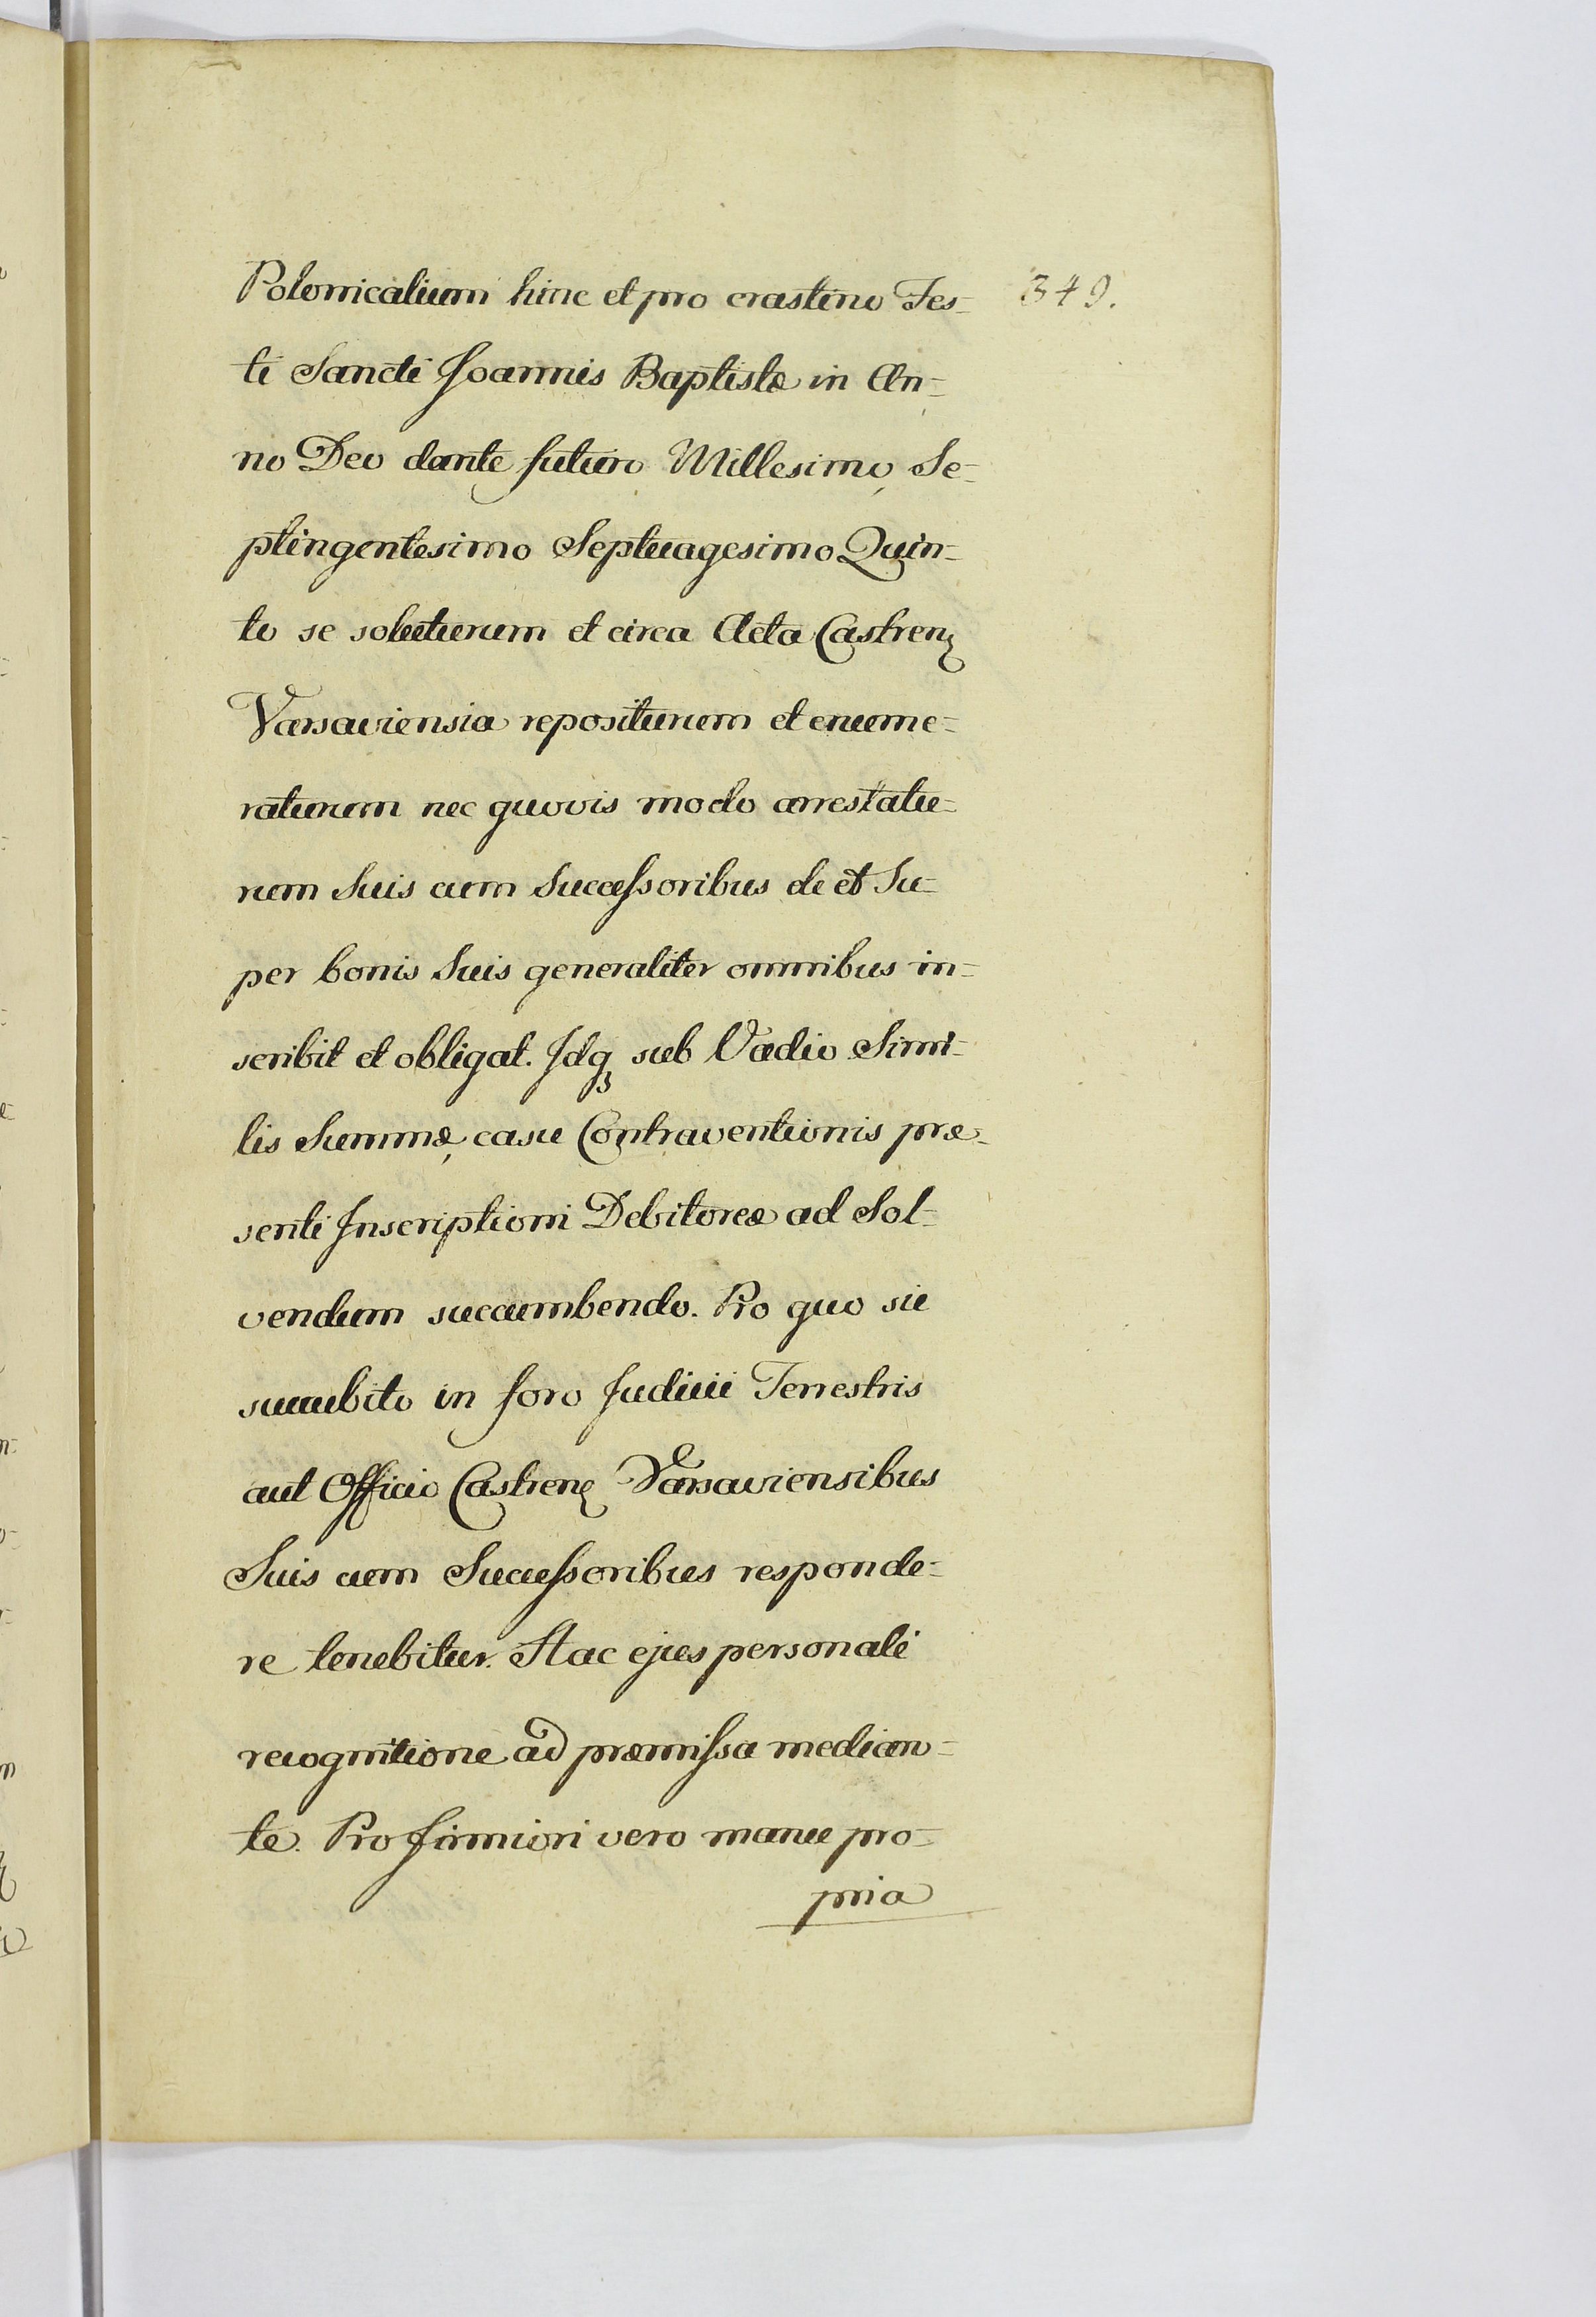 Polonicalium hinc et pro crastino Fes-
349.
ti Sancti Joannis Baptistæ in An-
no Deo dante futuro Millesimo Se-
ptingentesimo Septuagesimo Quin-
to se soluturum et circa Acta Castrenꝫ
Varsaviensia repositurum et enume-
raturum nec quovis modo arrestatu-
rum Suis cum Successoribus de et Su-
per bonis Suis generaliter omnibus in-
scribit et obligat. Idqꝫ sub Vadio Simi-
lis Summæ, casu Contraventionis præ-
senti Inscriptioni Debitoreæ ad Sol-
vendum succumbendo. Pro quo sic
succubito in foro Judicii Terrestris
aut Officio Castrenꝫ Varsaviensibus
Suis cum Successoribus responde-
re tenebitur. Hac ejus personali
recognitione ad præmissa median-
te. Pro firmiori vero manu pro-
pria